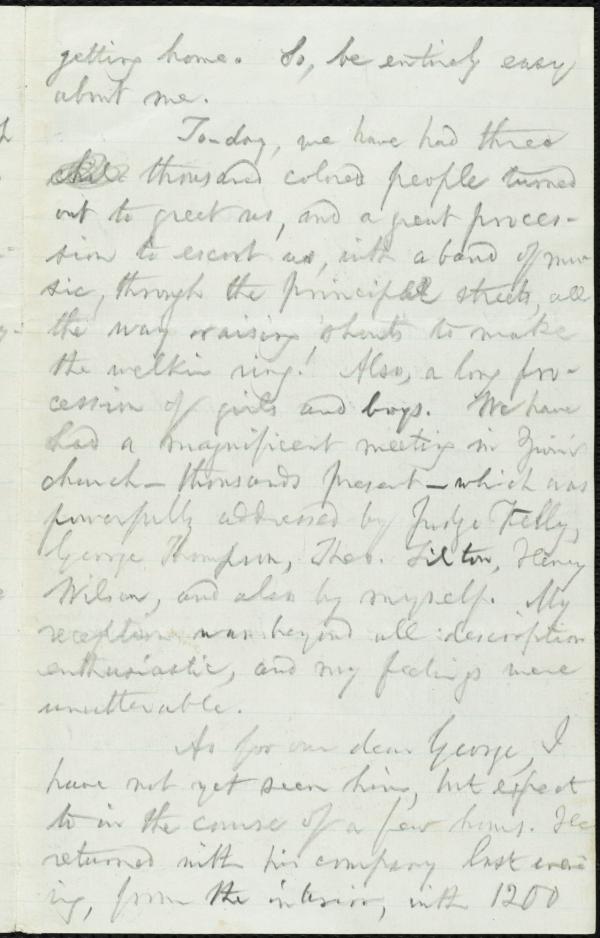 getting home. So, be entirely easy
about me.
To-day, we have had three
thousand colored people turned
out to greet us, and a great proces-
sion to escort us, with a band of mu-
sic, through the principal streets, all
the way raising shouts to make
the welkin ring! Also, a long pro-
cession of girls and boys. We have
had a magnificent meeting in Zion's
church — thousands present — which was
powerfully addressed by Judge Kelly,
George Thompson, Theo. Tilton, Henry
Wilson, and also by myself. My
reception was beyond all description
enthusiastic, and my feelings were
unutterable.
As for our dear George, I
have not yet seen him, but expect
to in the course of a few hours. He
returned with his company last even-
ing, from the interior, with 1200